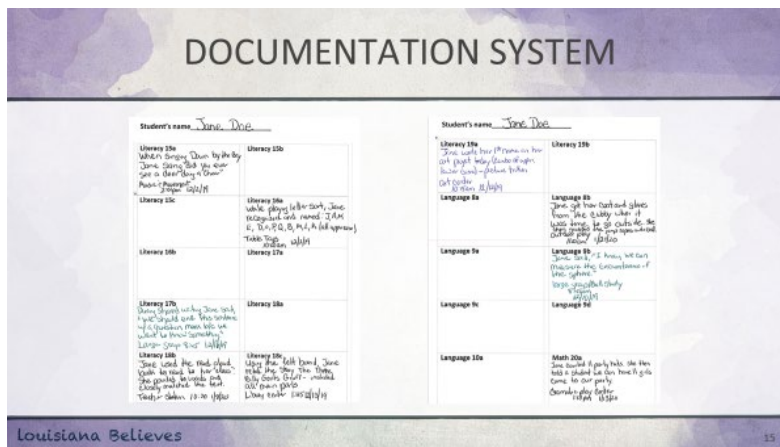 DOCUMENTATION SYSTEM
Student's name Jane Doe
Literacy 15a
When singing Down by the Bay
Jane sang "Did you ever
see a deer
12/2/19
Literacy 15b
Literacy 15c
Literacy 16a
while playing letter sort, Jane
recognized and named: J, A, M
Table Toys
Literacy 16b
Literacy 17a
Literacy 17b
During shared writing Jane said,
"we should end this sentence
w/ a question mark b/c we
want to know something"
Large group 8:45
Literacy 18a
Literacy 18b
Jane used the read aloud
book to read to her "class"
She pointed to words and
closely matched the text.
Literacy 18c
Using the felt board, Jane
retold the story The Three
Billy Goats Gruff - included
all main parts
Library center
Student's name Jane Doe
Literacy 19a
Jane wrote her 1st name on her
art project today
lower case) - picture taken
art center
Literacy 19b
Language 8a
Language 8b
Jane got her coat and gloves
from the cubby when it
was time to go outside.
outside play
Language 9a
Language 9b
Jane said, "I know, we can
measure the circumference of
the sphere."
large group
Language 9c
Language 9d
Language 10a
Math 20a
Jane counted 11 party hats. She then
told a student we can have 11 girls
come to our party.
Dramatic play center
Louisiana Believes
15